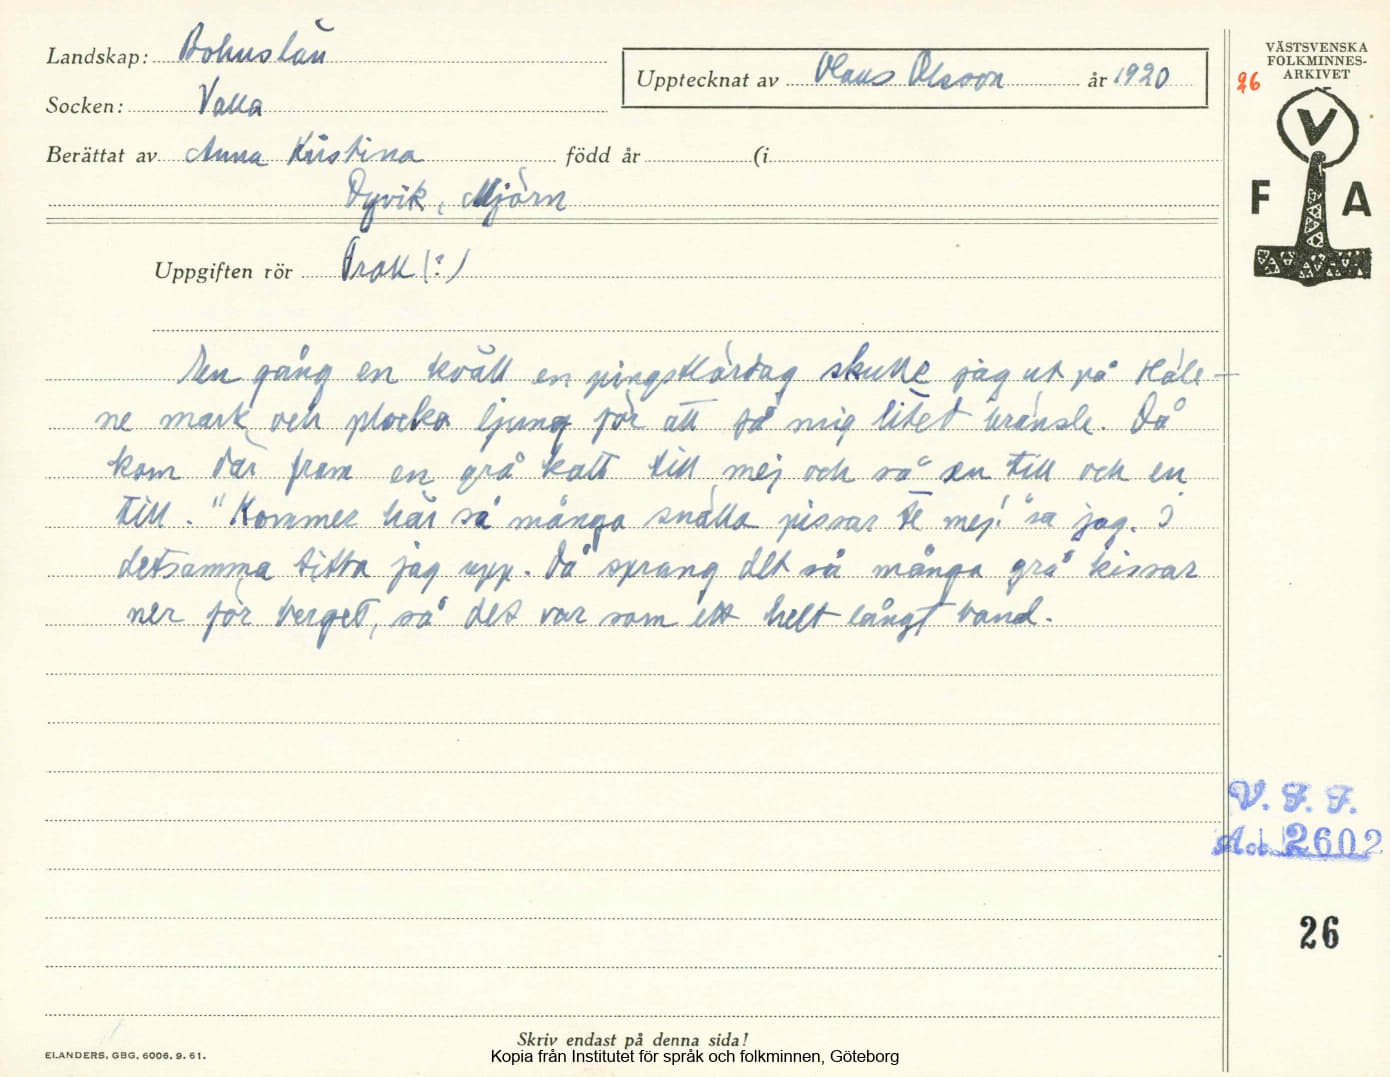 Landskap: Bohuslän
Socken: Valla
Berättat av Anna Kristina född år (i
Dyvik, Mjörn
Upptecknat av Olaus Olsson år 1920
VÄSTSVENSKA
FOLKMINNES-
ARKIVET
26
V
F A
Uppgiften rör Troll (?)
En gång en kväll en pingstlördag skulle jag ut på Håle-
ne mark och plocka ljung för att få mig litet bränsle. Då
kom där fram en grå katt till mej och så en till och en
till. "Kommer här så många snälla pissar te mej!" sa jag. I
detsamma titta jag upp. Då sprang det så många grå kissar
ner för berget, så det var som ett helt långt band.
V. F. F.
Acc. 2602
26
Skriv endast på denna sida!
ELANDERS, GBG. 6006. 9. 61.
Kopia från Institutet för språk och folkminnen, Göteborg